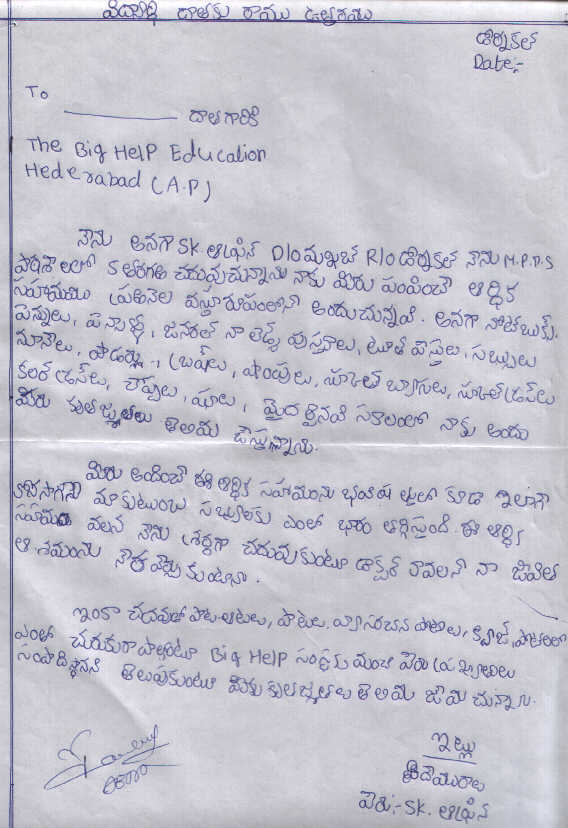 విద్యార్థి దాతకు రాయు ఉత్తరము
డోర్నకల్
Date:-
To
దాతగారికి
The Big Help Education
Hederabad (A.P)
నేను అనగా SK. ఆఫ్రిన్ D/o మఖ్బుల్ R/o డోర్నకల్ నేను M.P.P.S
పాఠశాలలో తరగతి చదువుచున్నాను నాకు మీరు పంపించే ఆర్థిక
సహాయము ప్రతినెల వస్తు రూపంలోనే అందుచున్నవి. అనగా నోట్ బుక్స్,
పెన్నులు, పెన్సిళ్ళు, జనరల్ నాలెడ్జ్ పుస్తకాలు, టూత్ పేస్టులు, సబ్బులు
నూనెలు, పౌడర్లు, బ్రష్‌లు, షాంపులు, స్కూల్ బ్యాగులు, స్కూల్ డ్రస్‌లు
కలర్ డ్రస్‌లు, చెప్పులు, షూలు, మొదలైనవి సకాలంలో నాకు అందు
మీకు కృతజ్ఞతలు తెలియ చేస్తున్నాను.
మీరు అందించే ఈ ఆర్థిక సహాయంను భవిష్యత్తులో కూడా ఇలాగే
కొనసాగిస్తే మా కుటుంబ సభ్యులకు ఎంతో భారం తగ్గిస్తుంది. ఈ ఆర్థిక
సహాయం వలన నేను శ్రద్ధగా చదువుకుంటూ డాక్టర్ కావలనే నా జీవిత
ఆశయంను నెరవేర్చు కుంటాను.
ఇంకా చదువుతో పాటు ఆటలు, పాటలు, వ్యాసరచన పోటీలు, క్విజ్, పోటీలలో
ఎంతో చురుకుగా పాల్గొంటూ Big HELP సంస్థకు మంచి పేరు ప్రఖ్యాతులు
సంపాదిస్తానని తెలుపుకుంటూ మీకు కృతజ్ఞతలు తెలియ జేయు చున్నాను.
ఇట్లు
విదేయురాలు
పేరు:- SK. ఆఫ్రిన్